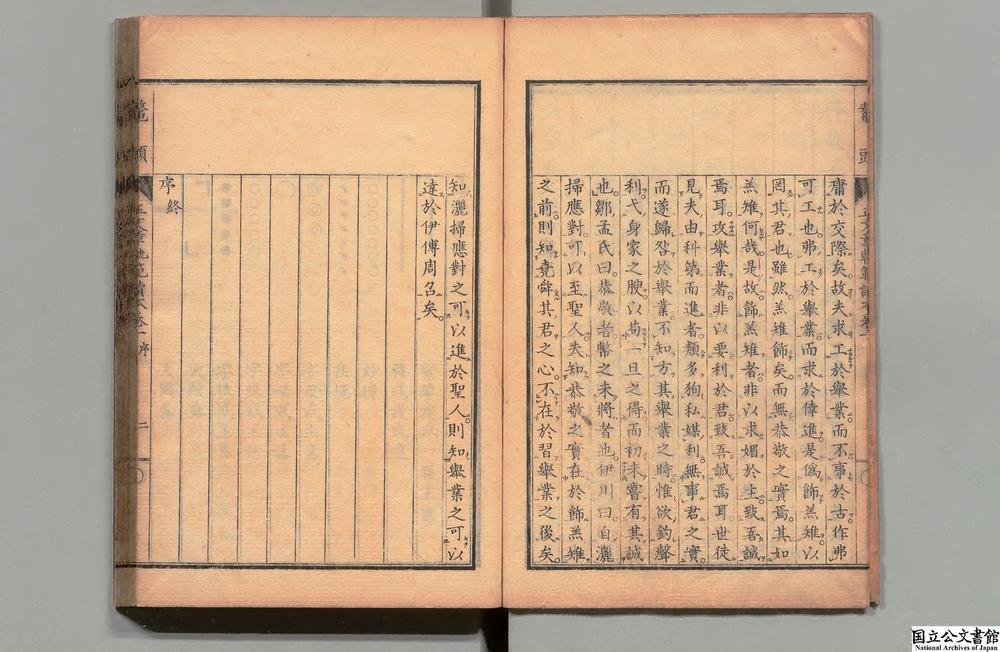 庸於交際矣故夫求工於舉業而不事於古作弗
可工也弗工於舉業而求於倖進是偽飾羔雉以
罔其君也雖然羔雉飾矣而無恭敬之實焉其如
羔雉何哉是故飾羔雉者非以求媚於主致吾誠
焉耳攻舉業者非以要利於君致吾誠焉耳世徒
見夫由科第而進者類多狥私媒利無事君之實
而遂歸咎於舉業不知方其舉業之時惟欲釣聲
利弋身家之腴以苟一旦之得而初未嘗有其誠
也鄒孟氏曰恭敬者幣之未將者也伊川曰自灑
掃應對可以至聖人夫知恭敬之實在於飾羔雉
之前則知堯舜其君之心不在於習舉業之後矣
知灑掃應對之可以進於聖人則知舉業之可以
達於伊傅周召矣
序終
鼇頭
卷一序
二
鼇頭
国立公文書館
National Archives of Japan